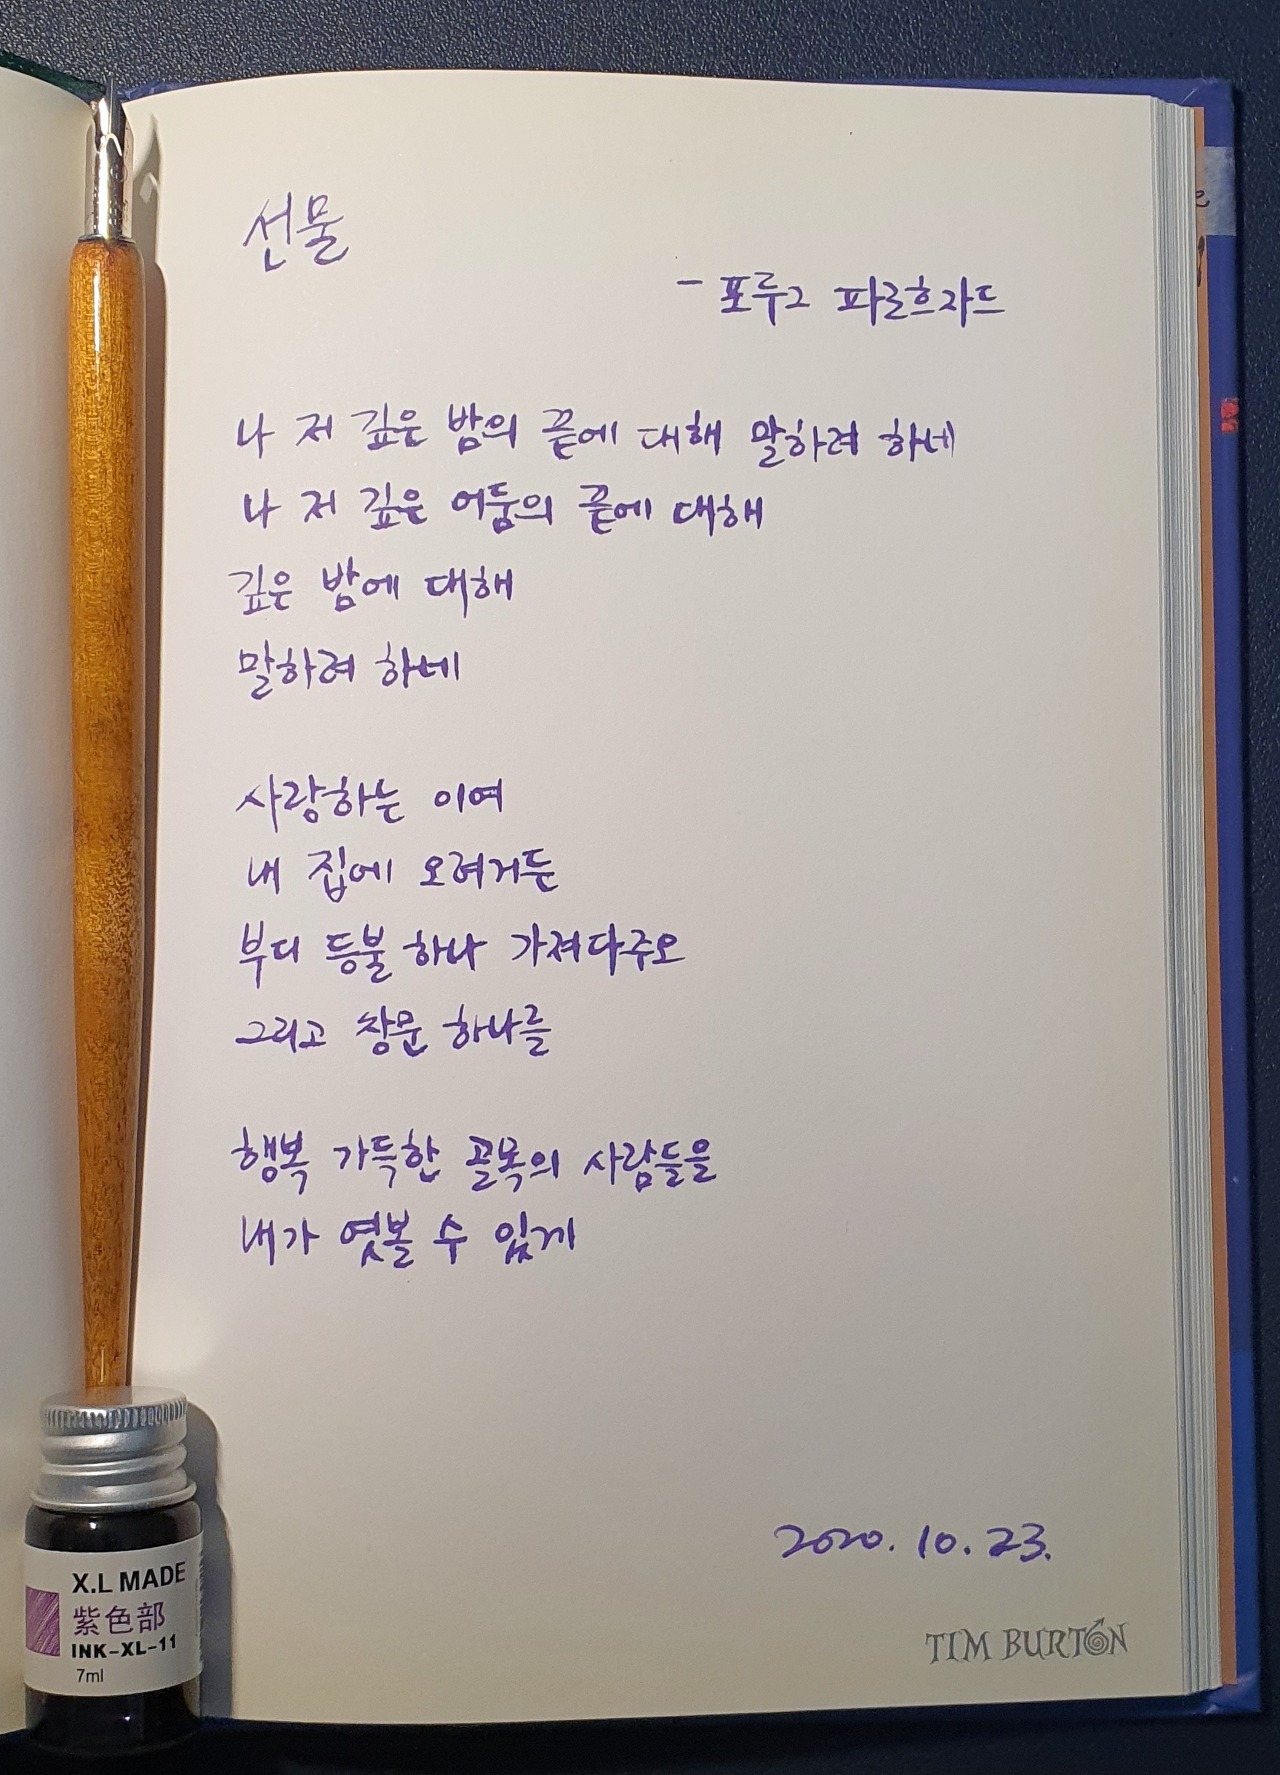 선물
- 포루그 파르흐자드
나 저 깊은 밤의 끝에 대해 말하려 하네
나 저 깊은 어둠의 끝에 대해
깊은 밤에 대해
말하려 하네
사랑하는 이여
내 집에 오려거든
부디 등불 하나 가져다주오
그리고 창문 하나를
행복 가득한 골목의 사람들을
내가 엿볼 수 있게
2020. 10. 23.
TIM BURTON
X.L MADE
紫色部
INK-XL-11
7ml